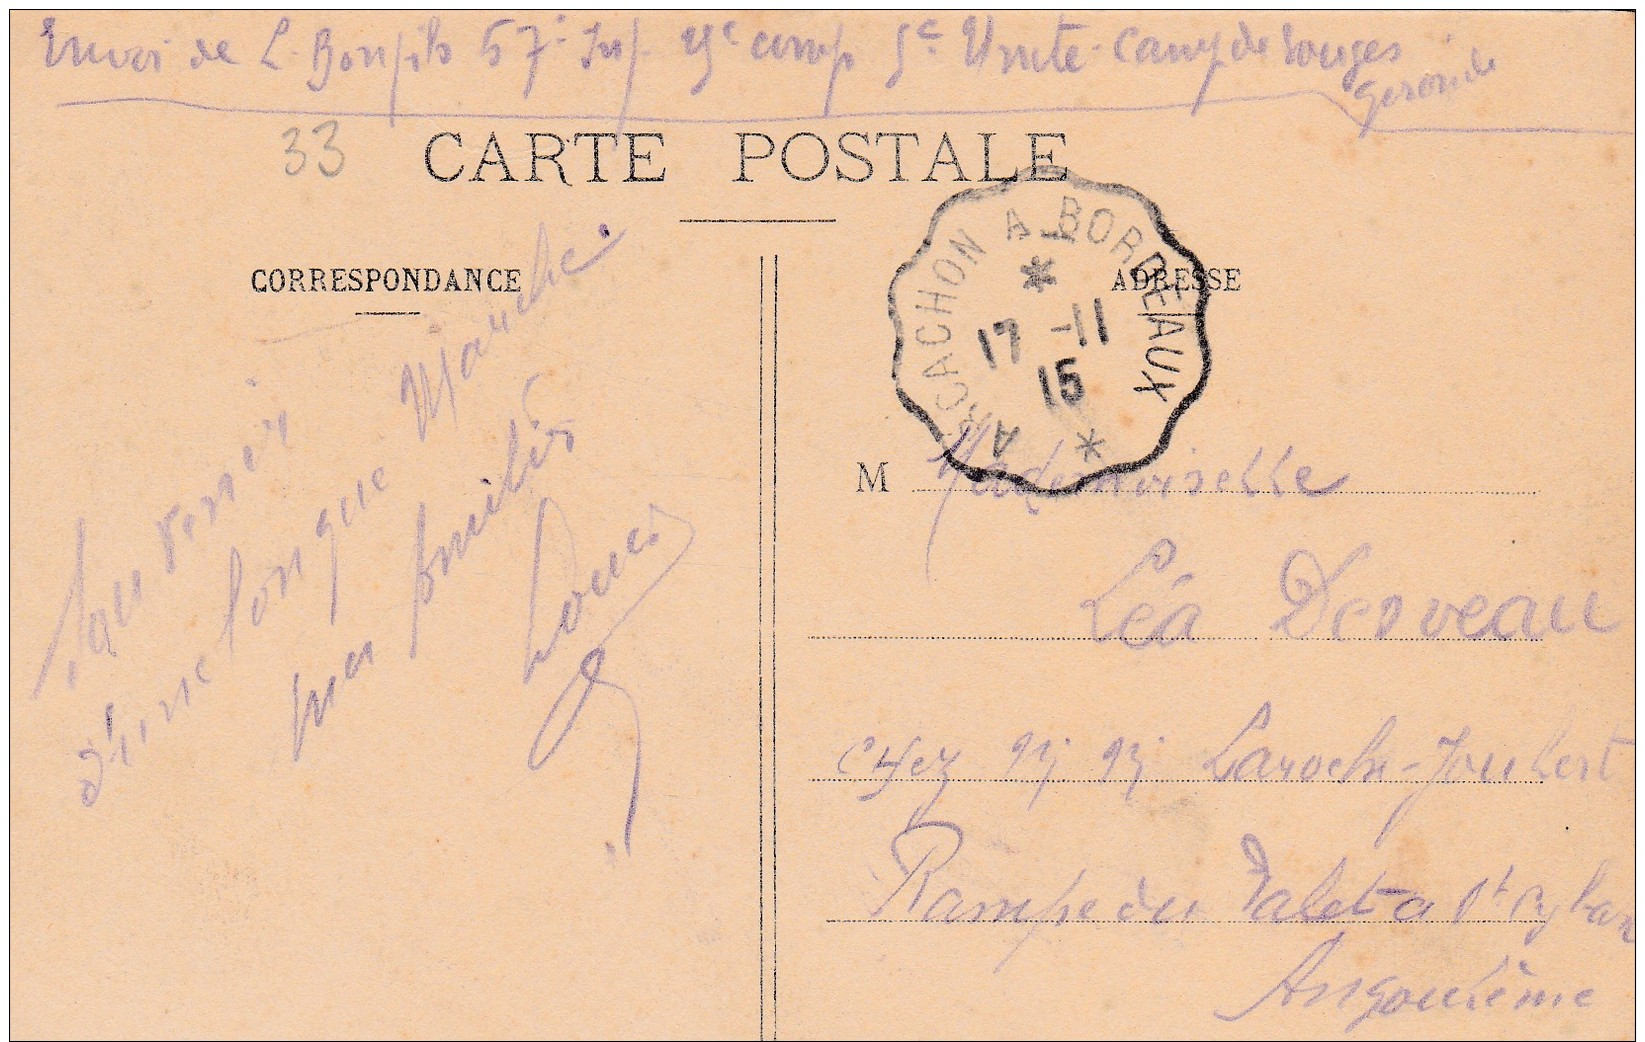 Envoi de L. Bonfils 57e Inf. 29e comp 5e Unité Camp de Souges
Gironde
33
CARTE POSTALE
CORRESPONDANCE
ADRESSE
ARCACHON A BORDEAUX
17 -11
15
Souvenir
d'une longue Marche
mes amitiés
Louis
M Mademoiselle
Léa Desveau
chez M M Laroche-Joubert
Rampe du Palet a St Cybar
Angoulême